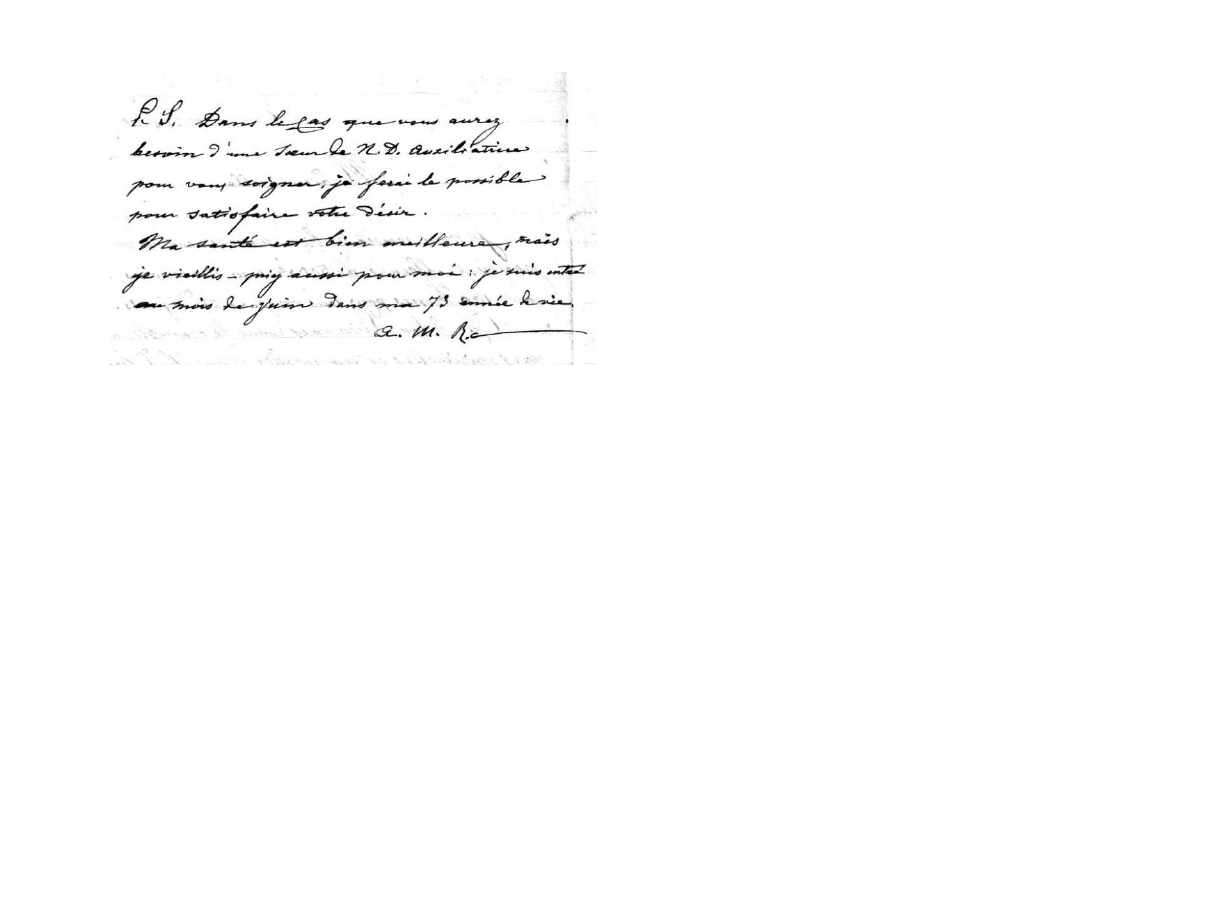 P. S. Dans le cas que vous aurez
besoin d'une sœur de N. D. Auxiliatrice
pour vous soigner, je ferai le possible
pour satisfaire votre désir.
Ma santé est bien meilleure, mais
je vieillis – priez aussi pour moi : je suis entré
au mois de Juin dans ma 73 année de vie.
A. M. R.